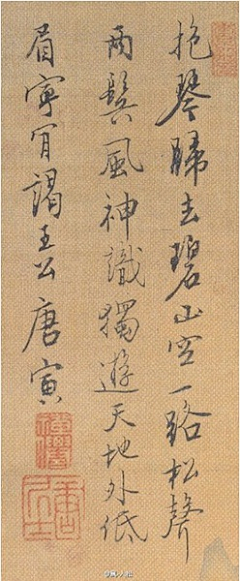 抱琴歸去碧山空一路松聲
兩鬢風神識獨遊天地外低
眉寧肎謁王公唐寅